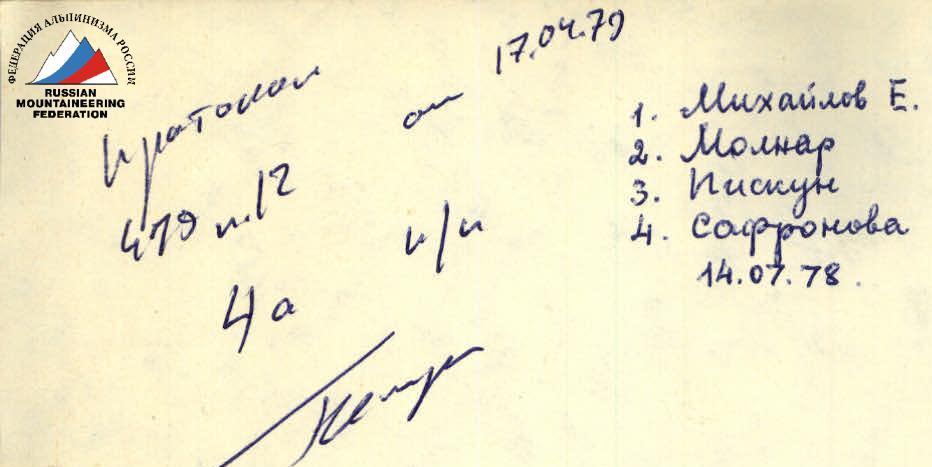 ФЕДЕРАЦИЯ АЛЬПИНИЗМА РОССИИ
RUSSIAN
MOUNTAINEERING
FEDERATION
Протокол от 17.04.79
479 п.12
4а п/п
1. Михайлов Е.
2. Молнар
3. Пискун
4. Сафронова
14.07.78.